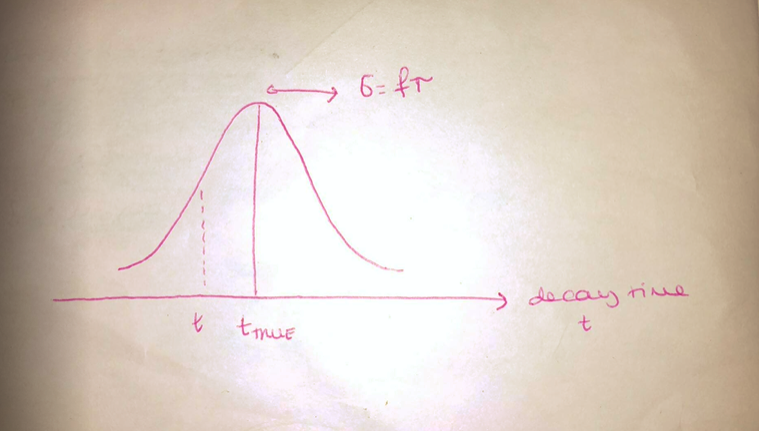 σ = fτ
t
t TRUE
decay time
t